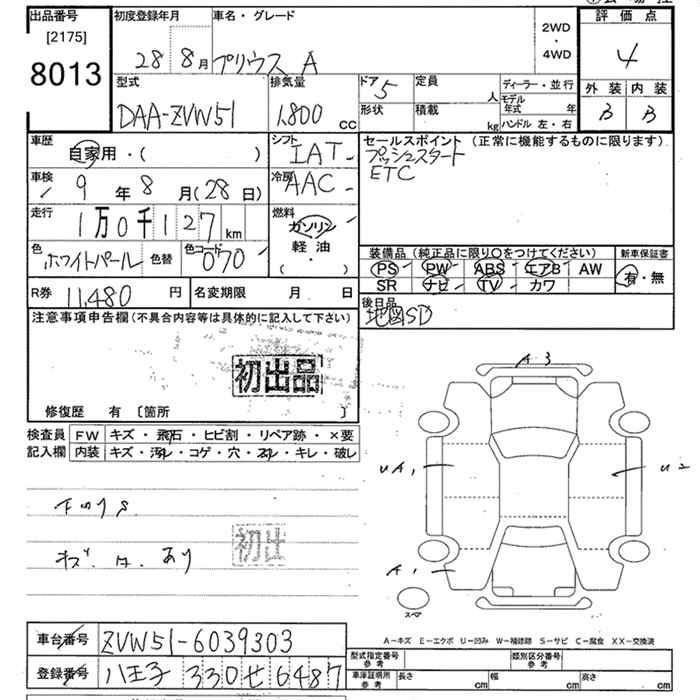 出品番号 初度登録年月 車名・グレード 2WD・4WD 評価点
[2175]
8013 28 8月 プリウス A 4
型式 排気量 ドア 5 定員 人 ディーラー・並行 外装 内装
DAA-ZVW51 1,800 cc 形状 積載 kg モデル年式 年 B B
ハンドル 左・右
車歴 シフト セールスポイント (正常に機能するものに限ります)
自家用・( ) IAT プッシュスタート
車検 9年 8月(28日) 冷房 AAC ETC
走行 1万0千127km 燃料
ガソリン
軽油
( ・ )
色 ホワイトパール 色替 色コード 070
装備品 (純正品に限り○をつけてください) 新車保証書
PS PW ABS エアB AW 有・無
SR ナビ TV カワ
R券 11,480円 名変期限 月 日 後日品
地図SD
注意事項申告欄(不具合内容等は具体的に記入して下さい)
初出品
修復歴 有 [箇所 ]
A3
検査員 FW キズ・飛石・ヒビ割・リペア跡・×要
記入欄 内装 キズ・汚れ・コゲ・穴・スレ・キレ・破レ
UA1 U2
下回りS
初出
キズ・凹・あり
A1
スペア
A-キズ E-エクボ U-凹み W-補修跡 S-サビ C-腐食 XX-交換済
車台番号 ZVW51-6039303
登録番号 八王子 330せ6487
型式指定番号 参考 類別区分番号 参考
車庫証明用 参考 長さ cm 幅 cm 高さ cm